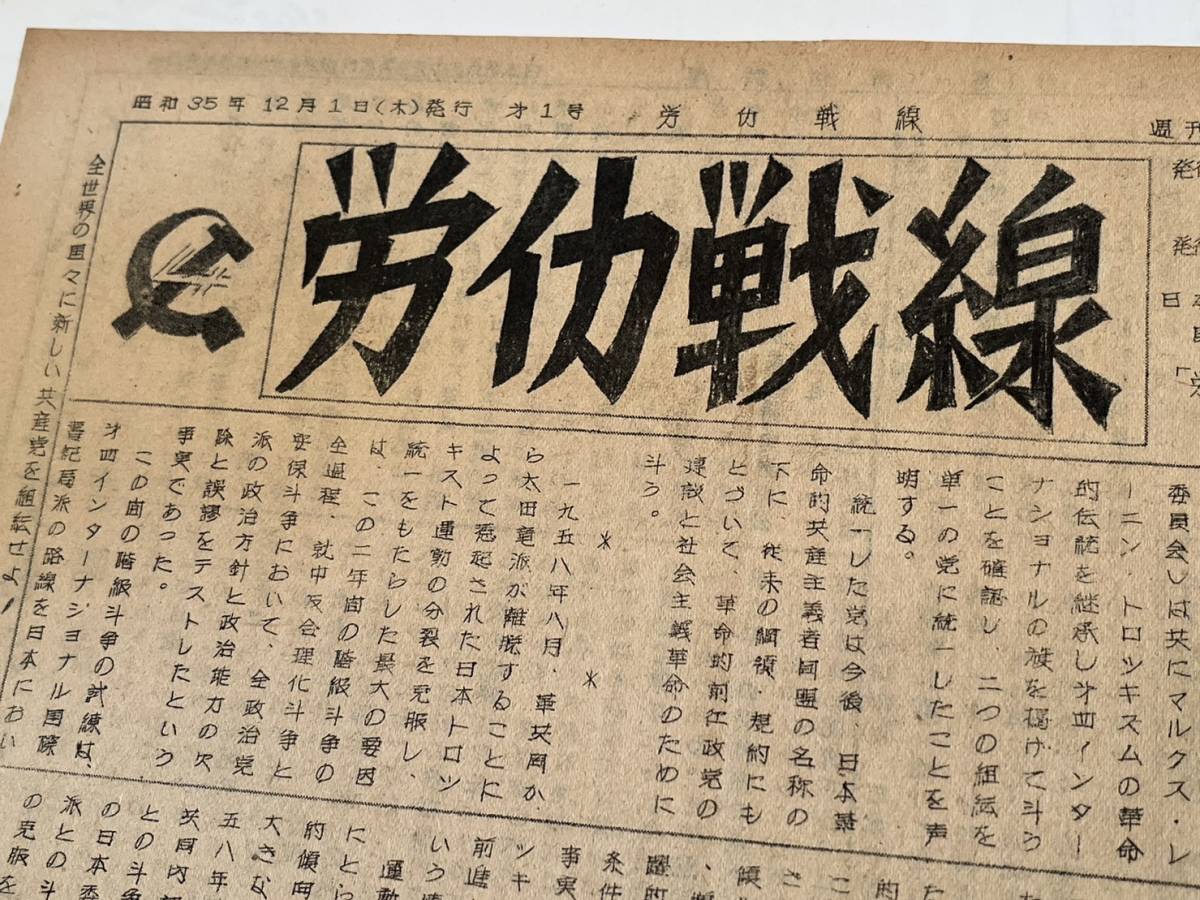 昭和35年12月1日(木)発行 才1号 労仂戦線 週刊
労仂戦線
全世界の国々に新しい共産党を組織せよ！
発行
発行
日本
委員会」は共にマルクス・レ
ーニン トロツキズムの革命
的伝統を継承し才四インター
ナショナルの旗を掲げて斗う
ことを確認し、二つの組织を
単一の党に統一したことを声
明する。
統一した党は今後、日本革
命的共産主義者同盟の名称の
下に、従来の綱領・規約にも
とづいて、革命的前衛政党の
建設と社会主義革命のために
斗う。
* *
一九五八年八月・革共同か
ら太田竜派が離脱することに
よって惹起された日本トロツ
キスト運動の分裂を克服し、
統一をもたらした最大の要因
は、この二年間の階級斗争の
全過程、就中反合理化斗争と
安保斗争において、全政治党
派の政治方針と政治能力の欠
除と誤謬をテストしたという
事実であった。
この間の階級斗争の試練は、
才四インターナショナル国際
書紀局派の路線を日本におい
た
的
こ
さ
傾
躍的
条件
事実
ツキ
前進
いう
運動
にとら
的傾向
大きな
五八年
共同内
との斗争
の日本委
派との斗
の克服を